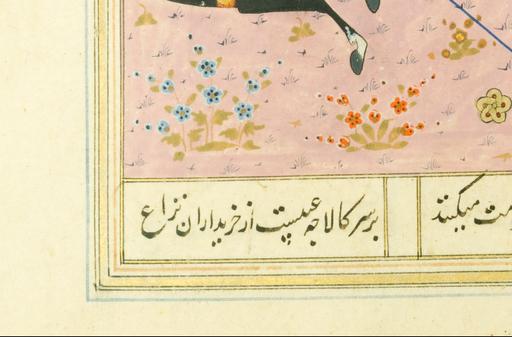 میکنند برسر کالا چه عیبست از خریداران نزاع